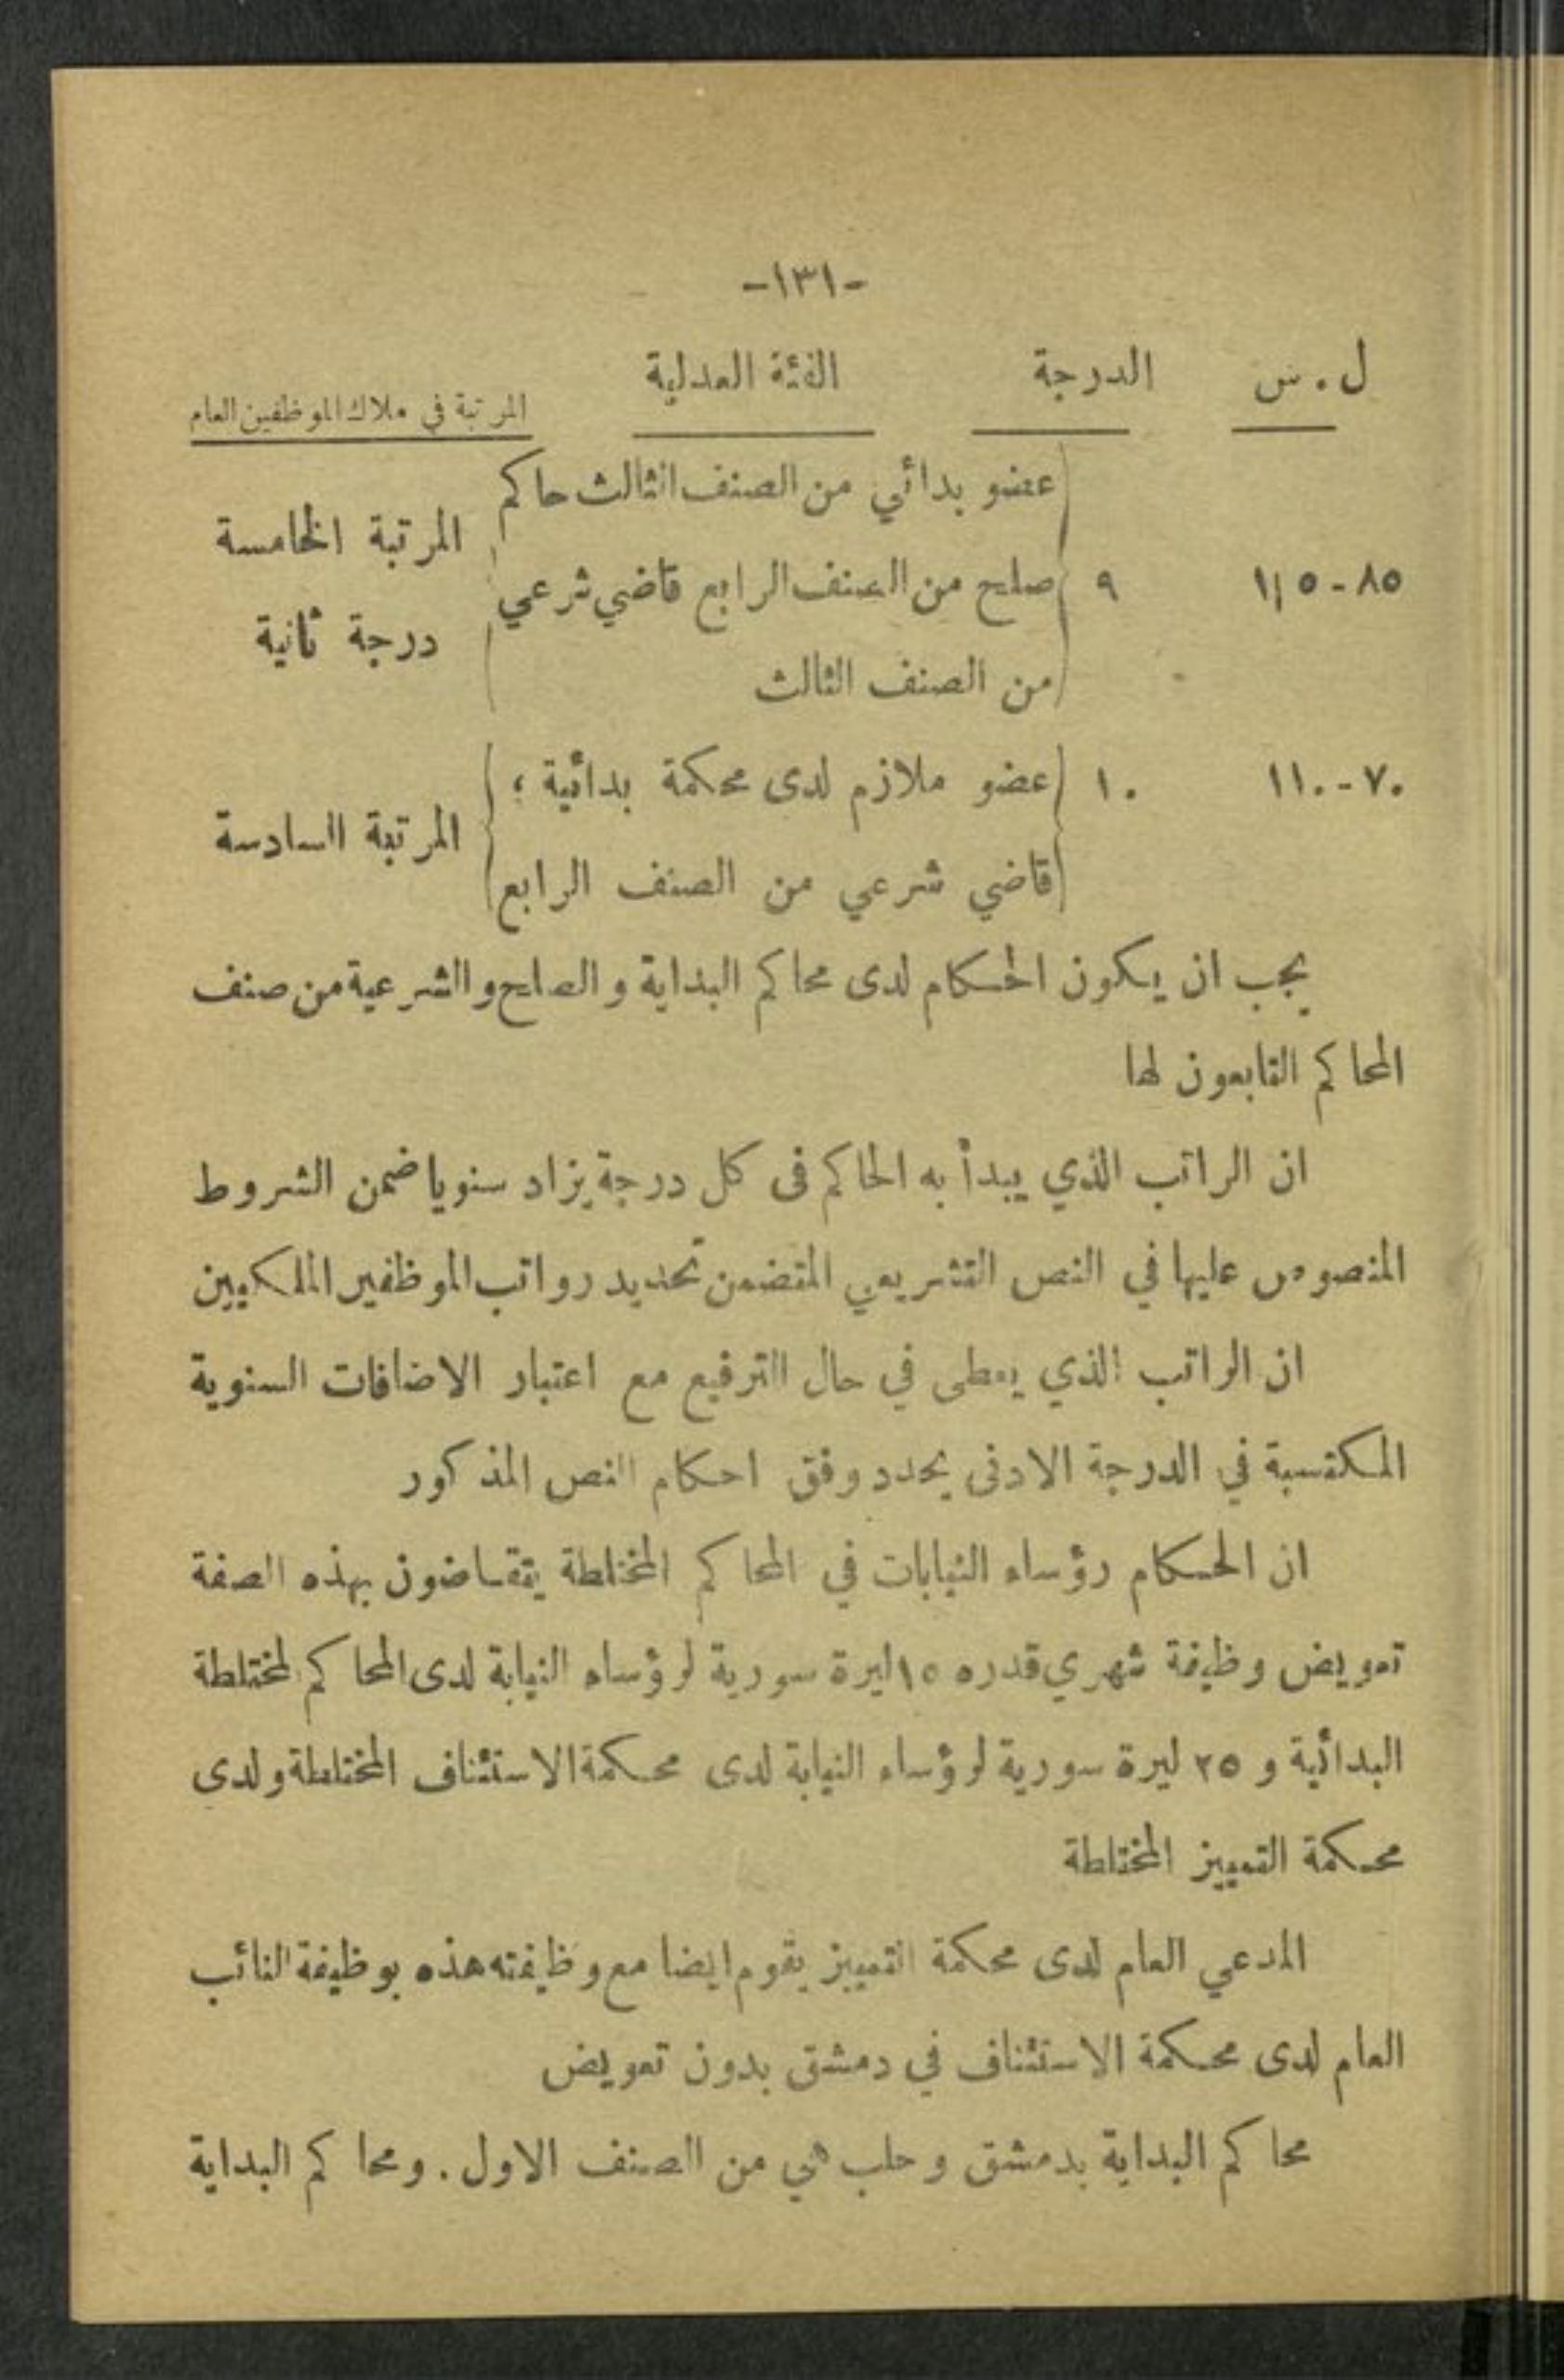 -١٣١-
ل . س الدرجة الفئة العدلية المرتبة في ملاك الموظفين العام
عضو بدائي من الصنف الثالث حاكم
المرتبة الخامسة
٨٥-١١٥ ٩ صلح من الصنف الرابع قاضي شرعي
درجة ثانية
من الصنف الثالث
٧٠-١١٠ ١٠ عضو ملازم لدى محكمة بدائية ؛
المرتبة السادسة
قاضي شرعي من الصنف الرابع
يجب ان يكون الحكام لدى محاكم البداية والصلح والشرعية من صنف
المحاكم التابعون لها
ان الراتب الذي يبدأ به الحاكم فى كل درجة يزاد سنويا ضمن الشروط
المنصوص عليها في النص التشريعي المتضمن تحديد رواتب الموظفين الملكيين
ان الراتب الذي يعطى في حال الترفيع مع اعتبار الاضافات السنوية
المكتسبة في الدرجة الادنى يحدد وفق احكام النص المذكور
ان الحكام رؤساء النيابات في المحاكم المختلطة يتقاضون بهذه الصفة
تعويض وظيفة شهري قدره ١٥ ليرة سورية لرؤساء النيابة لدى المحاكم لمختلطة
البدائية و ٢٥ ليرة سورية لرؤساء النيابة لدى محكمة الاستئناف المختلطة ولدى
محكمة التمييز المختلطة
المدعي العام لدى محكمة التمييز يقوم ايضا مع وظيفته هذه بوظيفة النائب
العام لدى محكمة الاستئناف في دمشق بدون تعويض
محاكم البداية بدمشق وحلب هي من الصنف الاول . ومحاكم البداية